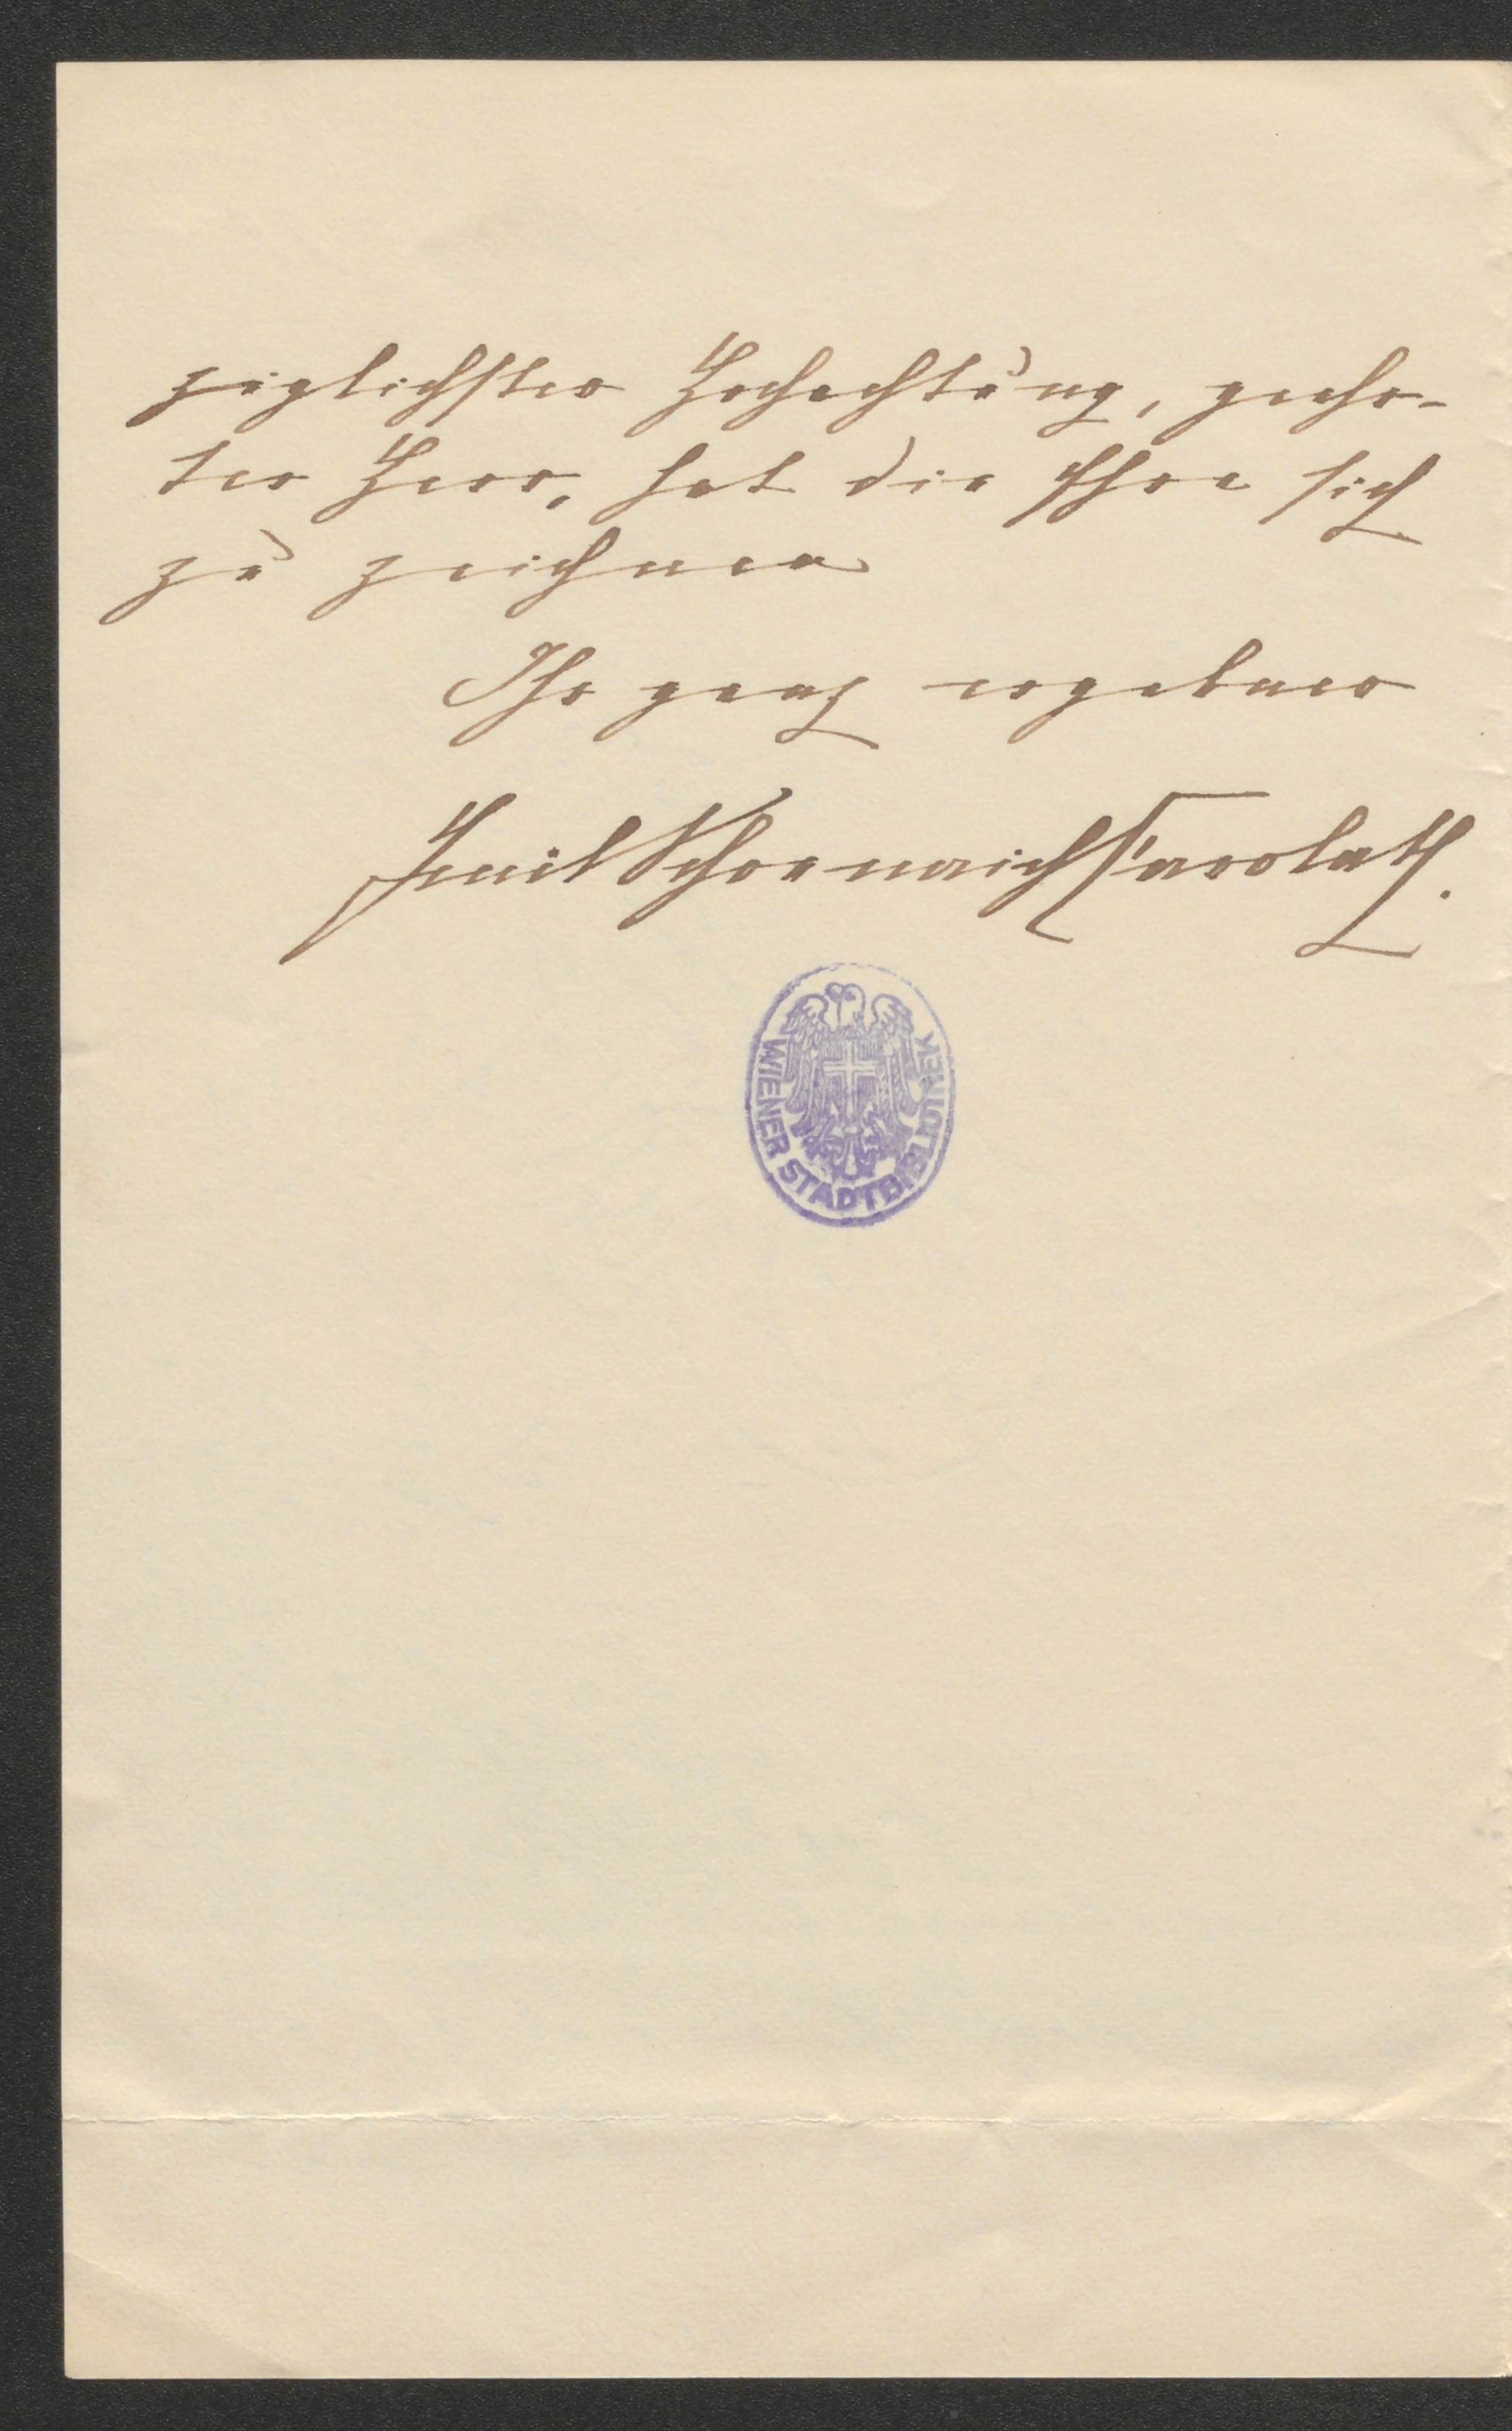 züglichster Hochachtung, geehr-
ter Herr, hat die Ehre sich
zu zeichnen
Ihr ganz ergebner
Emil Schoenaich Carolath.
WIENER STADTBIBLIOTHEK